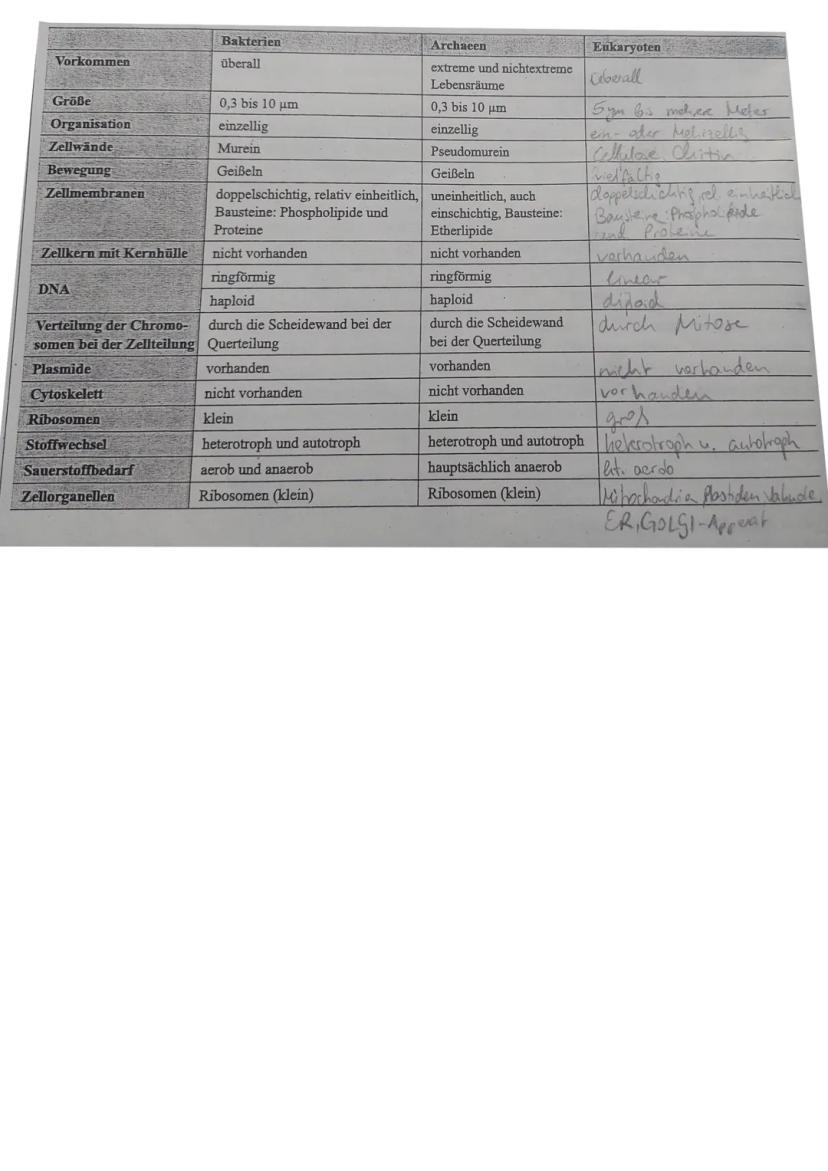 Bakterien Archaeen Eukaryoten
Vorkommen überall extreme und nichtextreme Lebensräume Überall
Größe 0,3 bis 10 µm 0,3 bis 10 µm 5 µm bis mehere Meter
Organisation einzellig einzellig ein- oder Mehrzellig
Zellwände Murein Pseudomurein Cellulose Chitin
Bewegung Geißeln Geißeln vielfältig
Zellmembranen doppelschichtig, relativ einheitlich, uneinheitlich, auch doppelschichtig rel. einheitlich
Bausteine: Phospholipide und einschichtig, Bausteine: Bausteine: Phospholipide
Proteine Etherlipide und Proteine
Zellkern mit Kernhülle nicht vorhanden nicht vorhanden vorhanden
DNA ringförmig ringförmig linear
haploid haploid diploid
Verteilung der Chromo- durch die Scheidewand bei der durch die Scheidewand durch Mitose
somen bei der Zellteilung Querteilung bei der Querteilung
Plasmide vorhanden vorhanden nicht vorhanden
Cytoskelett nicht vorhanden nicht vorhanden vorhanden
Ribosomen klein klein groß
Stoffwechsel heterotroph und autotroph heterotroph und autotroph heterotroph u. autotroph
Sauerstoffbedarf aerob und anaerob hauptsächlich anaerob
Zellorganellen Ribosomen (klein) Ribosomen (klein) Mitochondia Plastiden
ER, GOLGI-Apperat